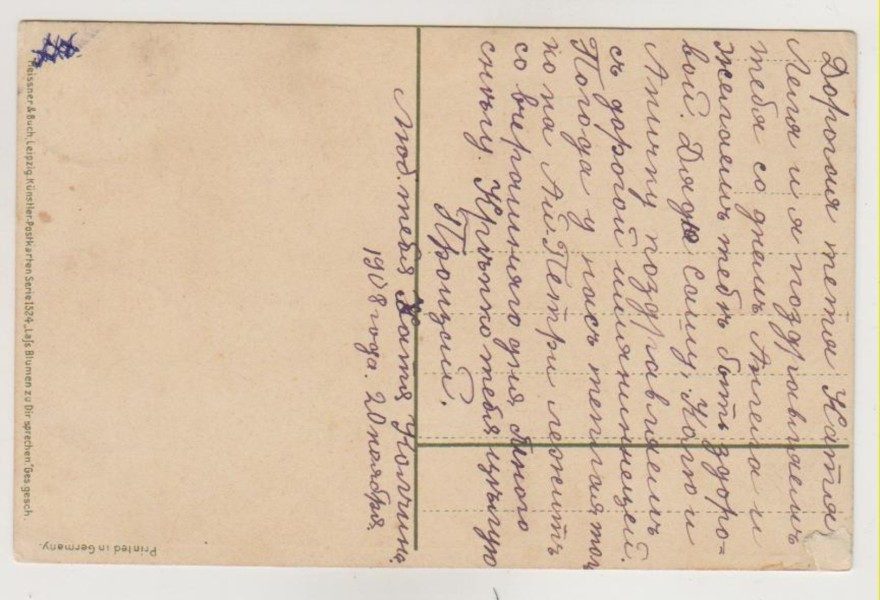 Дорогая тетя Катя!
Леля и я поздравляемъ
тебя со днемъ Ангела и
желаемъ тебѣ быть здоро-
вой. Дядю Сашу, Колю и
Аничку поздравляемъ
съ дорогой имянинницей.
Погода у насъ теплая толь
ко на Ай-Петри лежитъ
со вчерашняго дня много
снѣгу. Крѣпко тебя цѣлую
Люб. тебя Катя
1908 года. 20 ноября.
Meissner & Buch, Leipzig. Künstler-Postkarten Serie 1524 „Laſs Blumen zu Dir sprechen" Ges. gesch.
Printed in Germany.